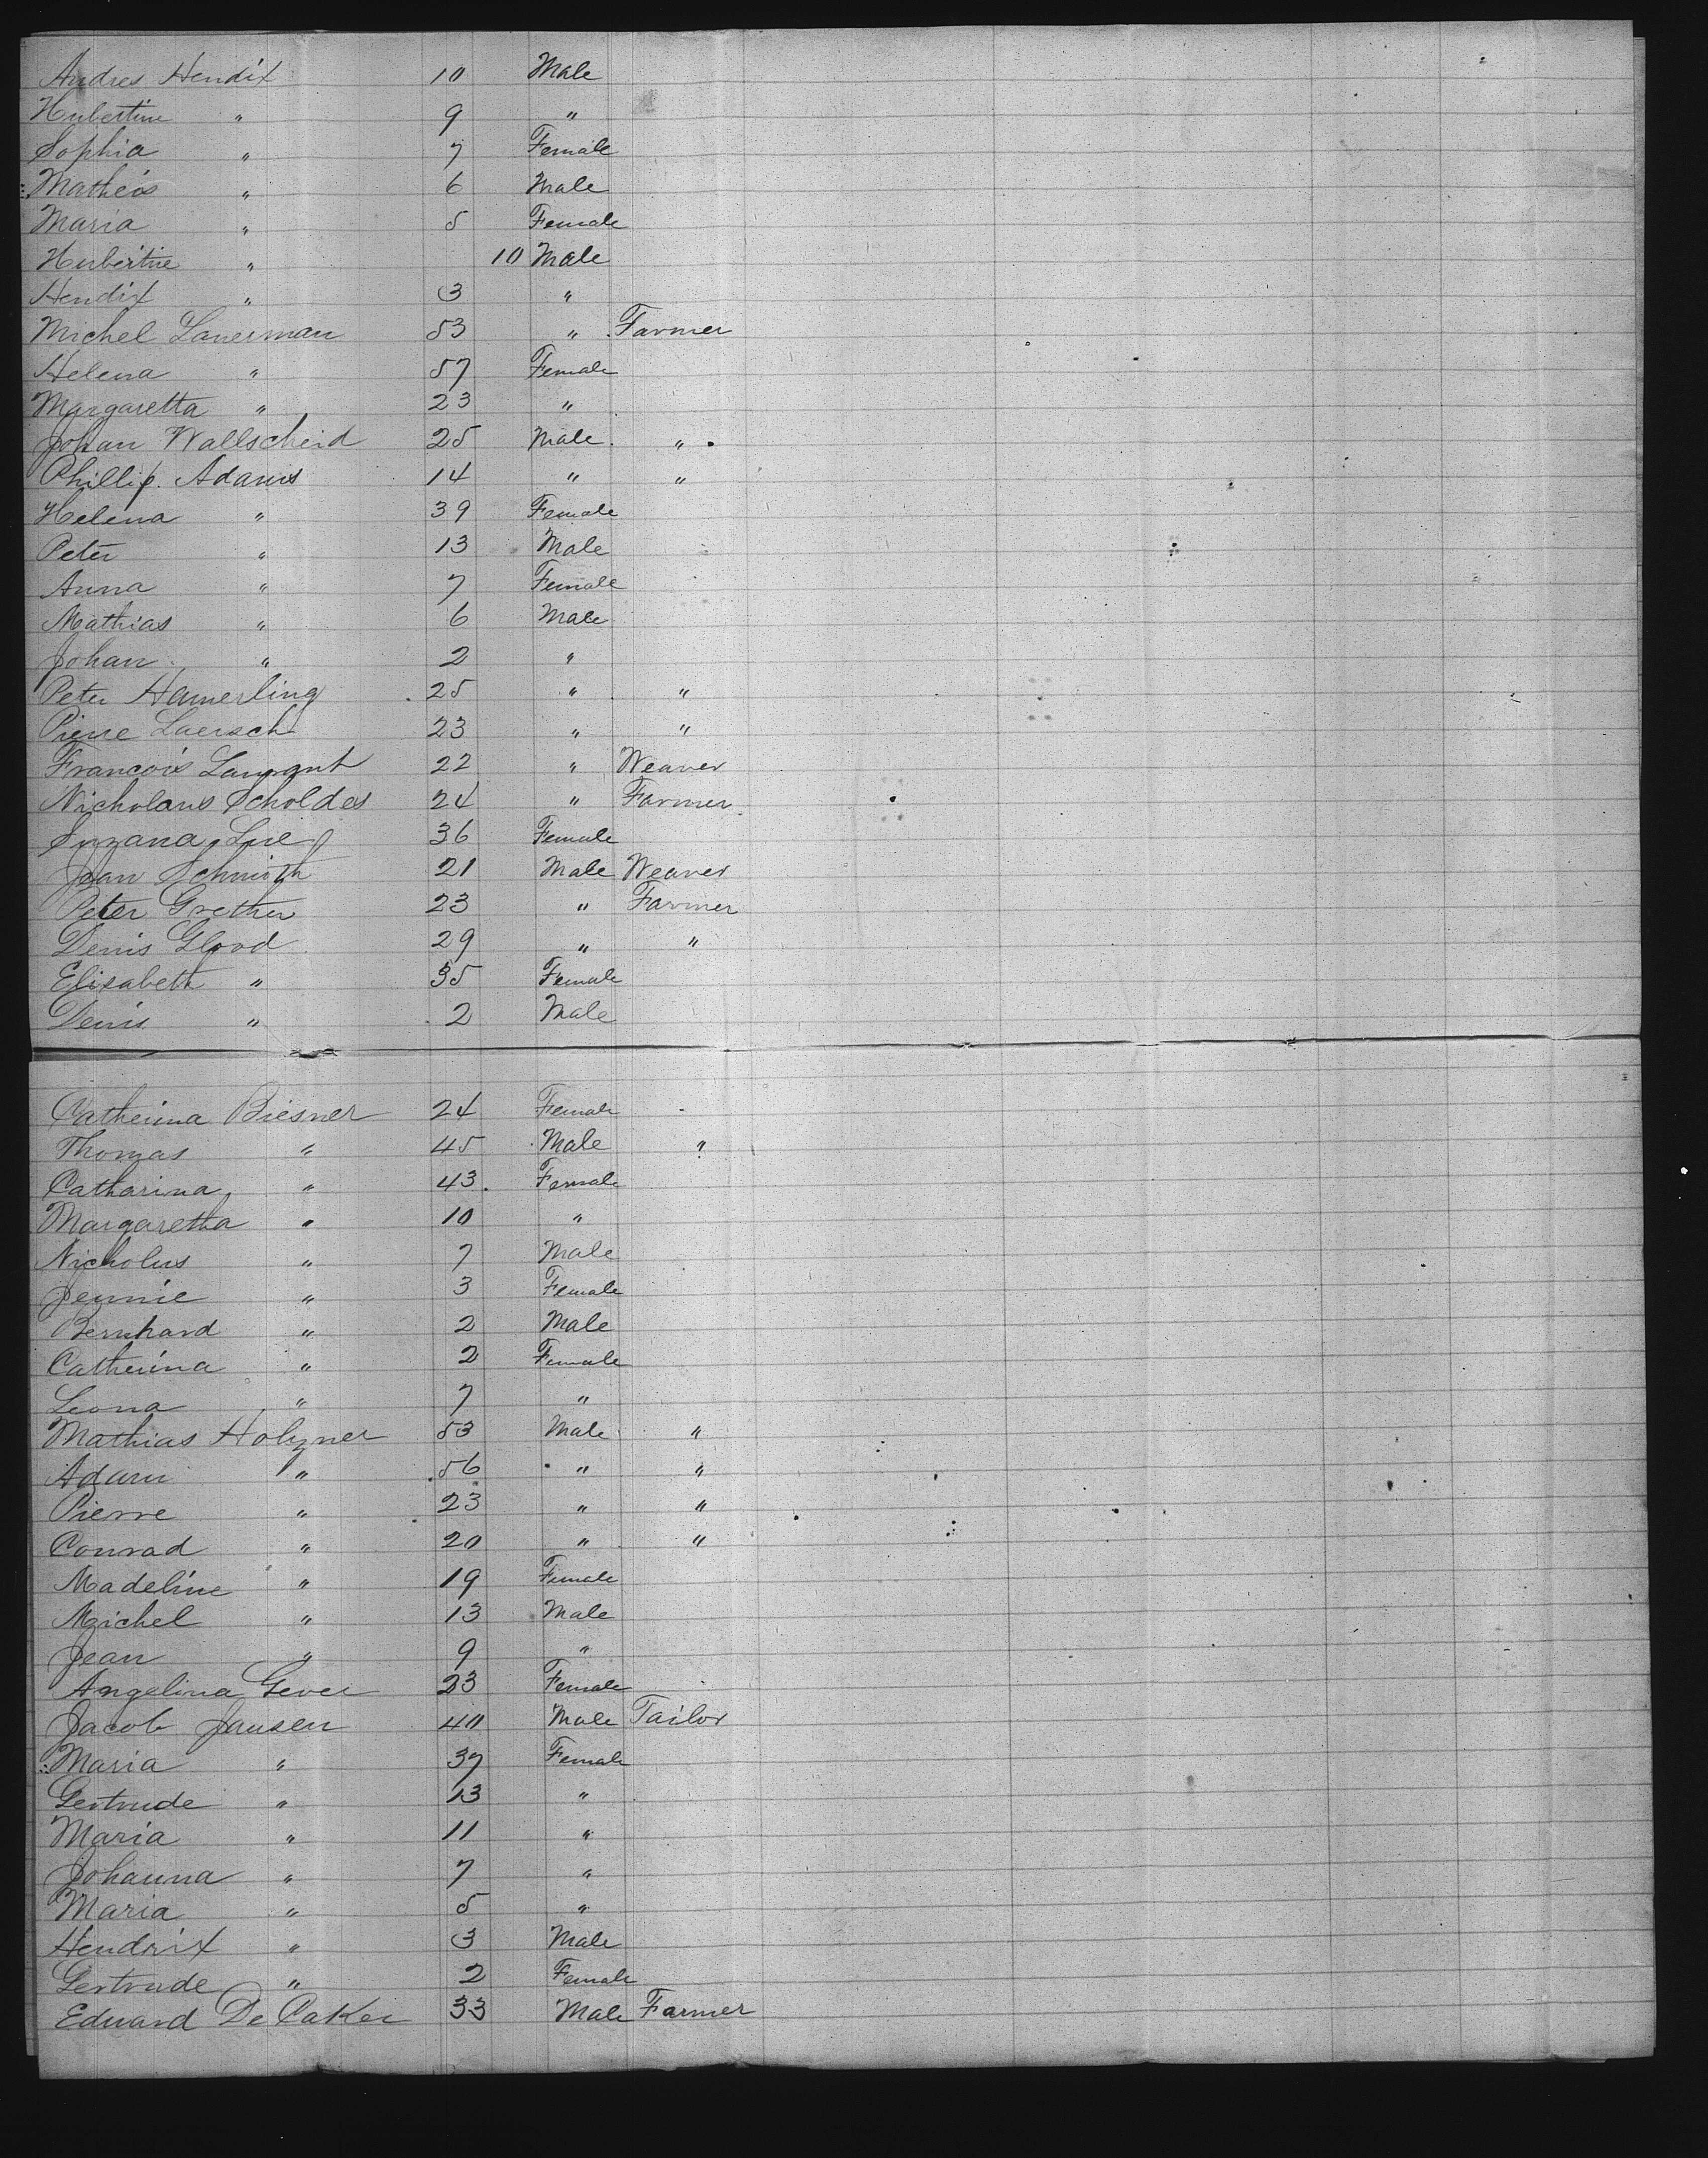 Andres Hendix 10 Male
Hubertine " 9 "
Sophia " 7 Female
Matheis " 6 Male
Maria " 5 Female
Hubertine " 10 Male
Hendix " 3 "
Michel Lanerman 53 " Farmer
Helena " 57 Female
Margaretta " 23 "
Johan Wallscheid 25 Male "
Phillip. Adams 14 " "
Helena " 39 Female
Peter " 13 Male
Anna " 7 Female
Mathias " 6 Male
Johan " 2 "
Peter Hamerling 25 " "
Pierre Laersch 23 " "
Francois 22 " Weaver
Nicholaus Scholdes 24 " Farmer
Suzana 36 Female
Jean Schmith 21 Male Weaver
Peter Grether 23 " Farmer
Denis Glood 29 " "
Elizabeth " 35 Female
Denis " 2 Male
Catherina Biesner 24 Female
Thomas " 45 Male "
Catharina " 43 Female
Margaretha " 10 "
Nicholus " 7 Male
Jennie " 3 Female
Bernhard " 2 Male
Catherina " 2 Female
Leona " 7 "
Mathias Holzner 53 Male "
Adam " 56 " "
Pierre " 23 " "
Conrad " 20 " "
Madeline " 19 Female
Michel " 13 Male
Jean " 9 "
Angelina Gever 23 Female
Jacob Jansen 40 Male Tailor
Maria " 37 Female
Gertrude " 13 "
Maria " 11 "
Johanna " 7 "
Maria " 5 "
Hendrix " 3 Male
Gertrude " 2 Female
Eduard De Caker 33 Male Farmer